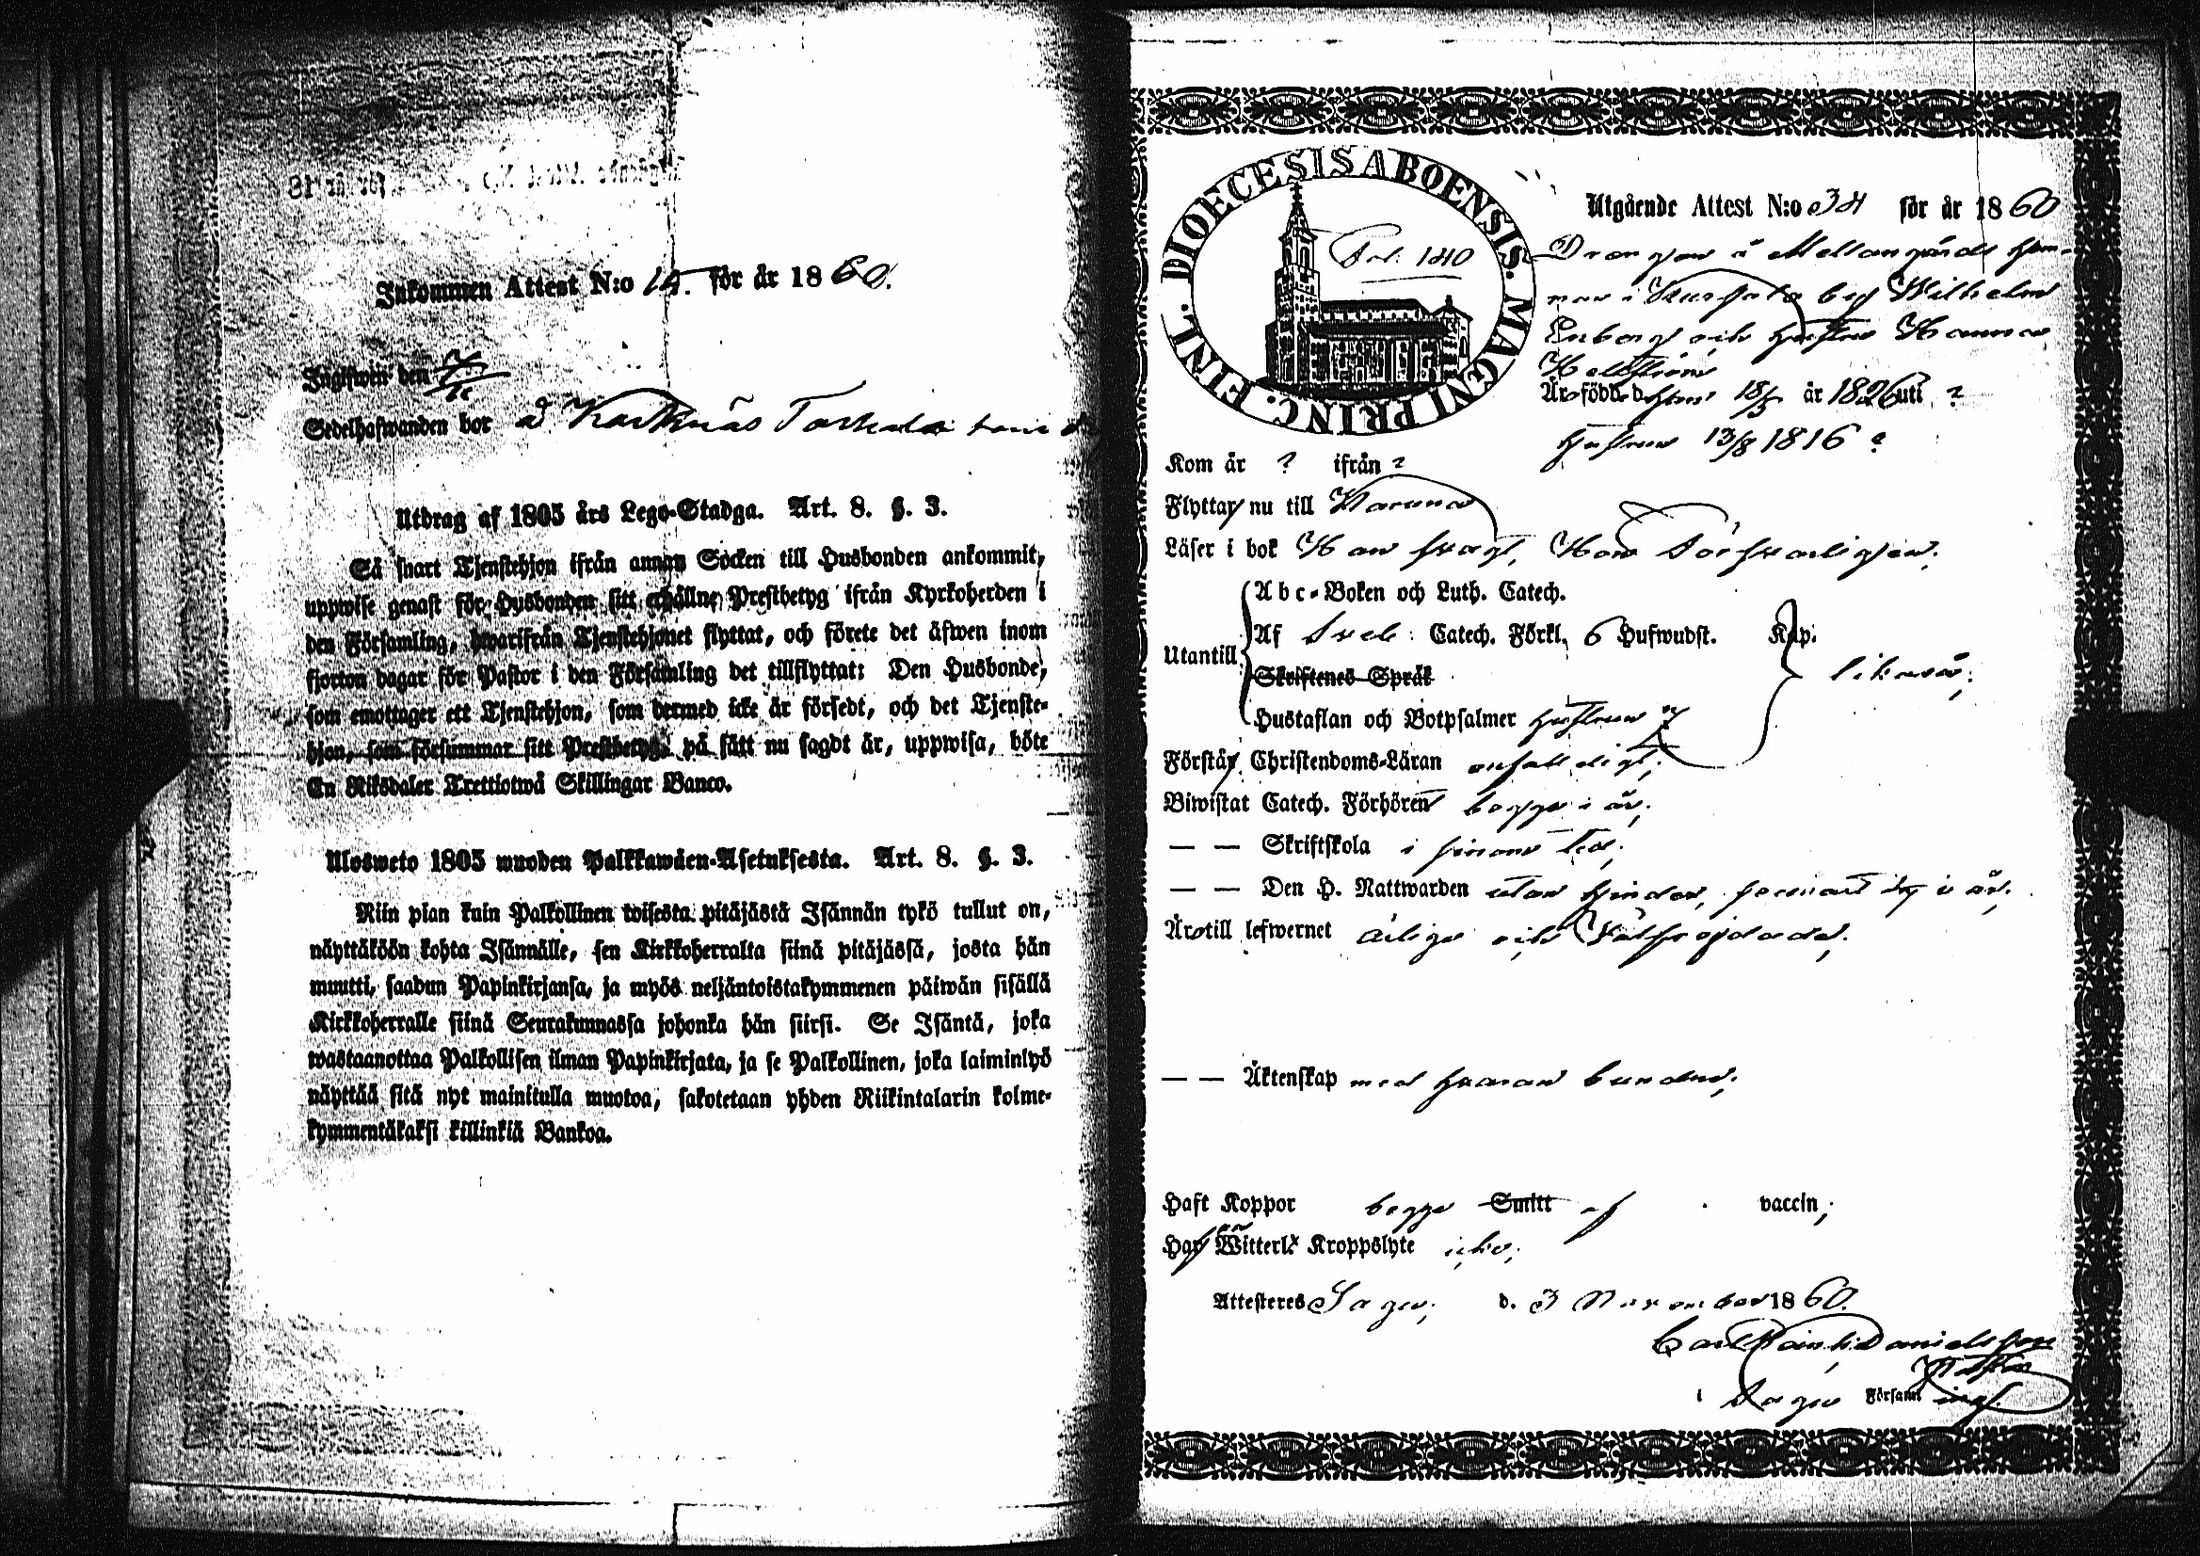 Inkommen Attest N:o för år 1860.
Ingifwen den
Sedelhafwanden bor å Karknäs
Utdrag af 1805 års Lego-Stadga. Art. 8. §. 3.
Så snart Tjenstehjon ifrån annan Socken till Husbonden ankommit,
uppwise genast för Husbonden sitt erhållne Prestbetyg ifrån Kyrkoherden i
den Församling, hwarifrån Tjenstehjonet flyttat, och förete det äfwen inom
fjorton dagar för Pastor i den Församling det tillflyttat: Den Husbonde,
som emottager ett Tjenstehjon, som dermed icke är försedt, och det Tjenste-
hjon, som försummar sitt Prestbetyg, på sätt nu sagdt är, uppwisa, böte
En Riksdaler Trettiotwå Skillingar Banco.
Ulosweto 1805 wuoden Palkkawäen-Asetuksesta. Art. 8. §. 3.
Niin pian kuin Palkollinen toisesta pitäjästä Isännän tykö tullut on,
näyttäköön kohta Isännälle, sen Kirkkoherralta siinä pitäjässä, josta hän
muutti, saadun Papinkirjansa, ja myös neljäntoistakymmenen päiwän sisällä
Kirkkoherralle siinä Seurakunnassa johonka hän siirsi. Se Isäntä, joka
wastaanottaa Palkollisen ilman Papinkirjata, ja se Palkollinen, joka laiminlyö
näyttää sitä nyt mainitulla muotoa, sakotetaan yhden Riikintalarin kolme-
kymmentäkaksi killinkiä Bankoa.
DIOECESIS ABOENSIS. MAGNI PRINC. FINL.
Fol: 180
Utgående Attest N:o 34 för år 1860
Drängen å Mellangårds hem-
man i Kursata by Wilhelm
Enberg och hustru Hanna
Hellström
Äro födde han 18/3 år 1826 uti ?
hustrun 13/8 1816 ?
Kom år ? ifrån ?
Flyttar nu till Karuna
Läser i bok Han svagt, Hon försvarligen.
Abc-Boken och Luth. Catech.
Utantill Af Sveb: Catech. Förkl. 6 Hufwudst. Kap. likaså;
Skriftenes Språk
Hustaflan och Botpsalmer hustrun
Förstår Christendoms-Läran enfaldigt;
Biwistat Catech. Förhören begge i år;
— — Skriftskola i sinom tid;
— — Den H. Nattwarden utan hinder, senast i år;
Äro till lefwernet ärliga och välfrejdade;
— — Äktenskap med hvaran bundne;
Haft Koppor begge Smitt af vaccin;
Har Witterl. Kroppslyte icke;
Attesteres Sagu; d. 3 November 1860.
Carl Danielsson
i Sagu Församl ing